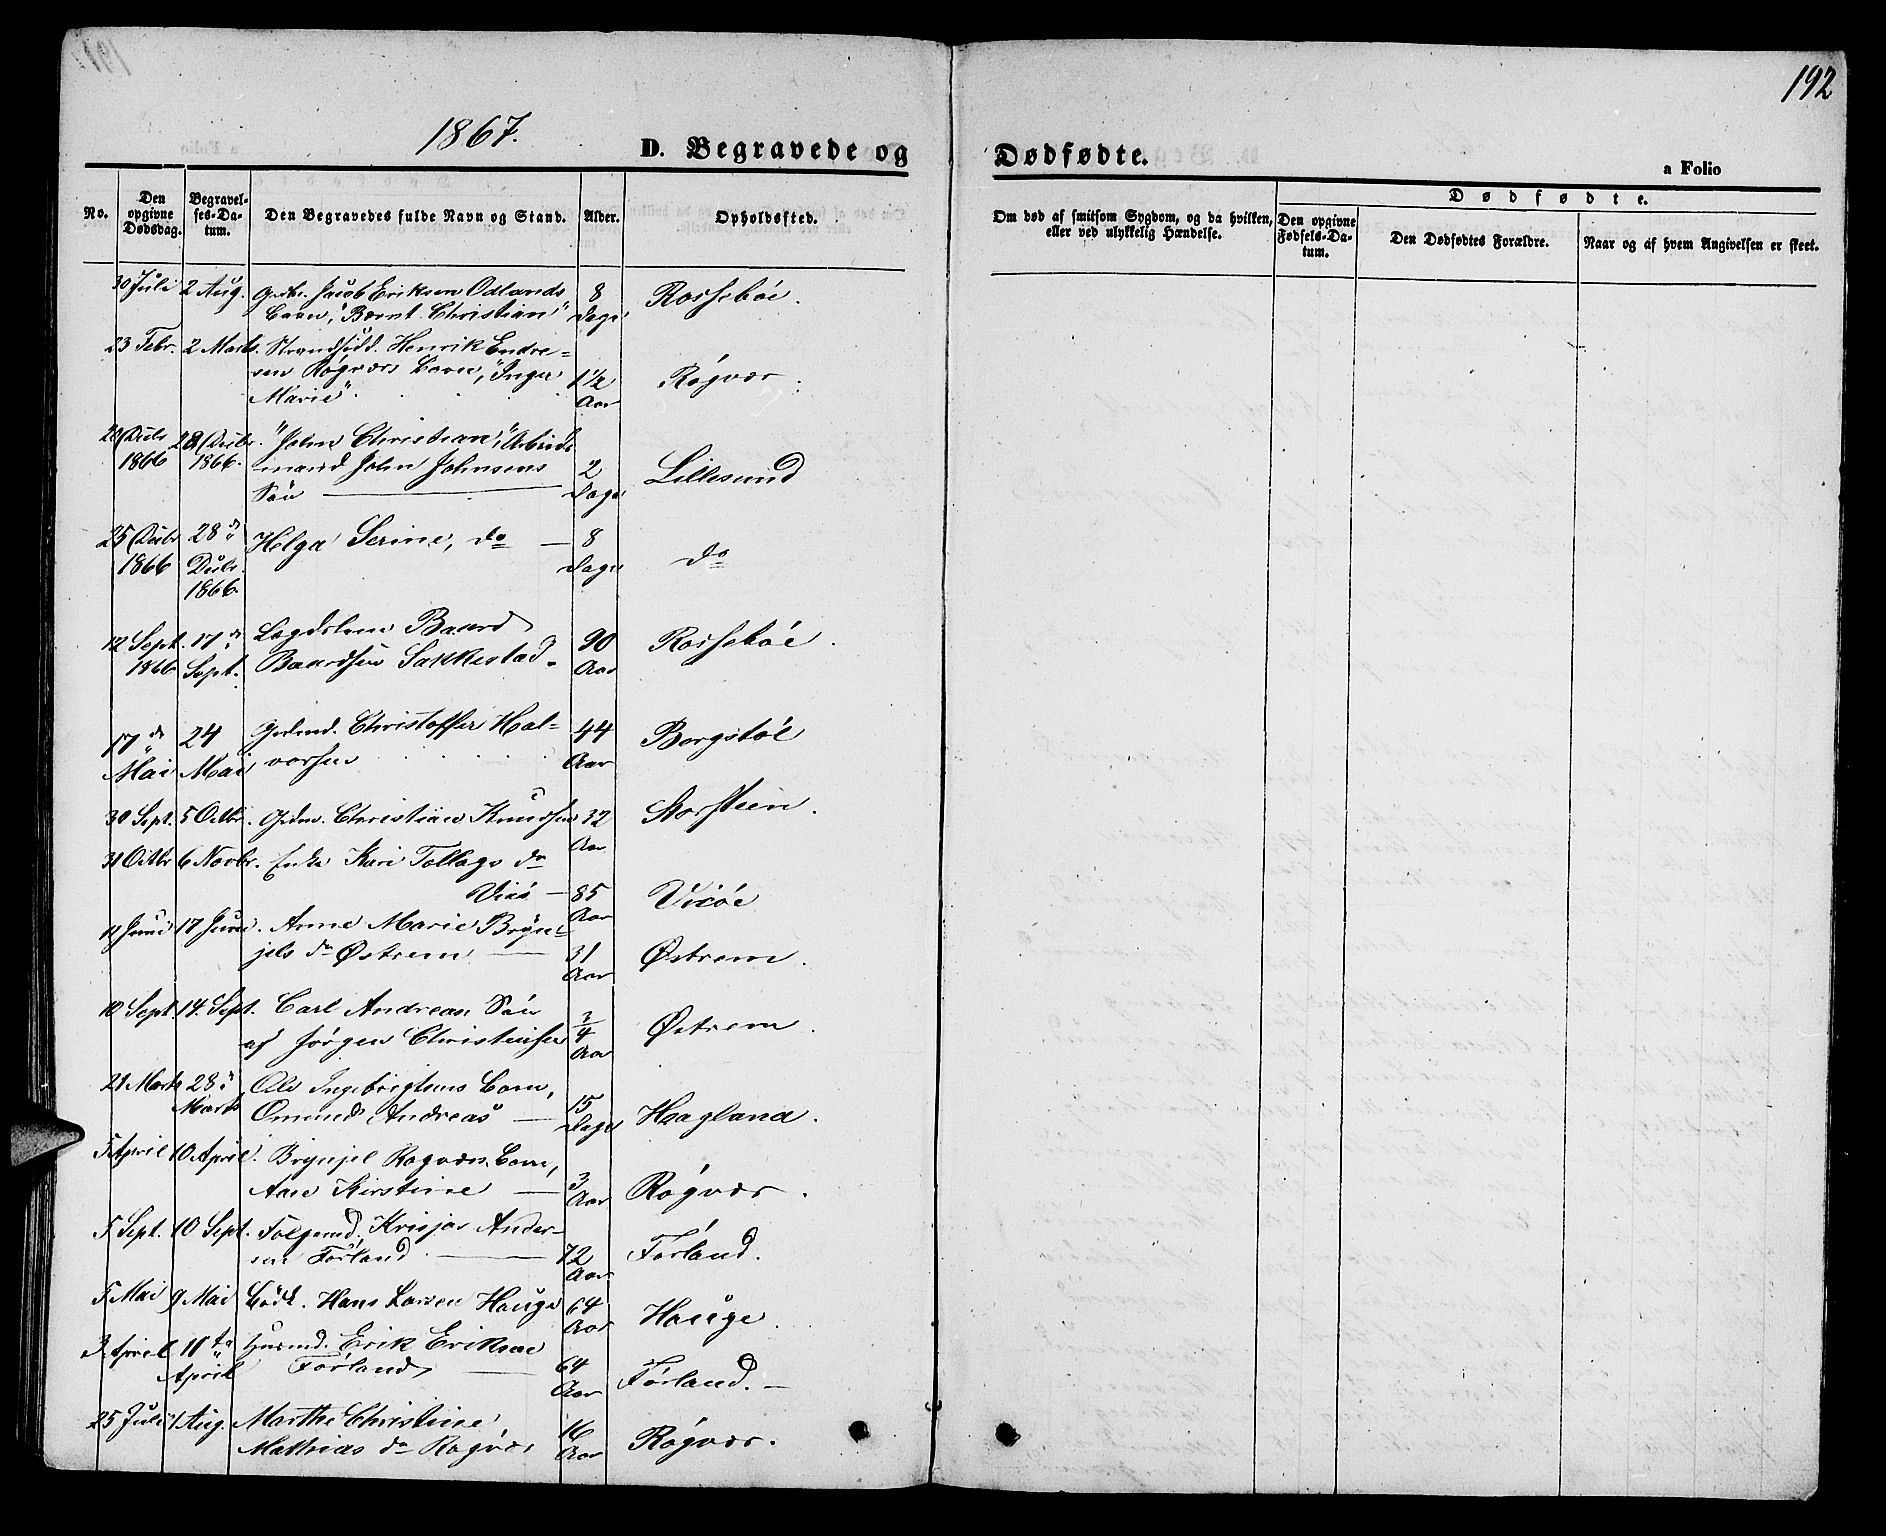 192
1867.
D. Begravede og
Dødfødte.
a Folio
No.
Den opgivne Dødsdag.
Begravelses-Datum.
Den Begravedes fulde Navn og Stand.
Alder.
Opholdssted.
Om død af smitsom Sygdom, og da hvilken, eller ved ulykkelig Hændelse.
Dødfødte.
Den opgivne Fødsels-Datum.
Den Dødfødtes Forældre.
Naar og af hvem Angivelsen er skeet.
30 Juli 2 Aug. Jacob Eriksen Odlands 8 Rossebøe.
Barn, "Bernt Christian" Dage
23 Febr. 2 Marts. Strandsidd. Henrik Endre-
sen Røgværs Barn, "Inger 1½ Røgvær.
Marie" Aar
28 Decbr. "John Christian", Arbeids
1866 1866. mand John Johnsens 2 Lillesund
Søn Dage
25 Decbr 28 Helga Serine, do 8
1866 Decbr. Dage do
1866.
12 Sept. 17 Baard 90 Rossebøe.
1866 Sept. Baardsen Sakkestad. Aar
17 24 Christoffer Hal- 44 Borgstøl
Mai Mai vorsen Aar
30 Sept. 5 Octbr. Christian Knudsen 32 Storsteen.
Aar
31 Octbr 6 Novbr. Enke Kari Tollags do
Visø 85 Visøe
Aar
11 Juni 17 Juni. Anne Marie Bryn-
jels do Østrem 31 Østrem.
Aar
10 Sept. 14. Sept. Carl Andreas, Søn 3/4 Østrem.
af Jørgen Christensen Aar
21 Marts 28 Ole Ingebrigtsens Barn, 15
Marts Omund Andreas Dage Hagland.
5 April 10 April. Brynjel Rogværs Barn, 3
Aase Kirstine Aar Røgvær.
5 Sept. 10 Sept. Følgemd. Ander-
sen Førland 72 Førland.
Aar
5 Mai 9 Mai Hans Larsen Hauge 64 Hauge
Aar
3 April 11te Husmd. Erik Eriksen
April Førland 64 Førland.
Aar
25 Juli 1 Aug. Marthe Christine 16
Mathias do Rogvær Aar Røgvær.